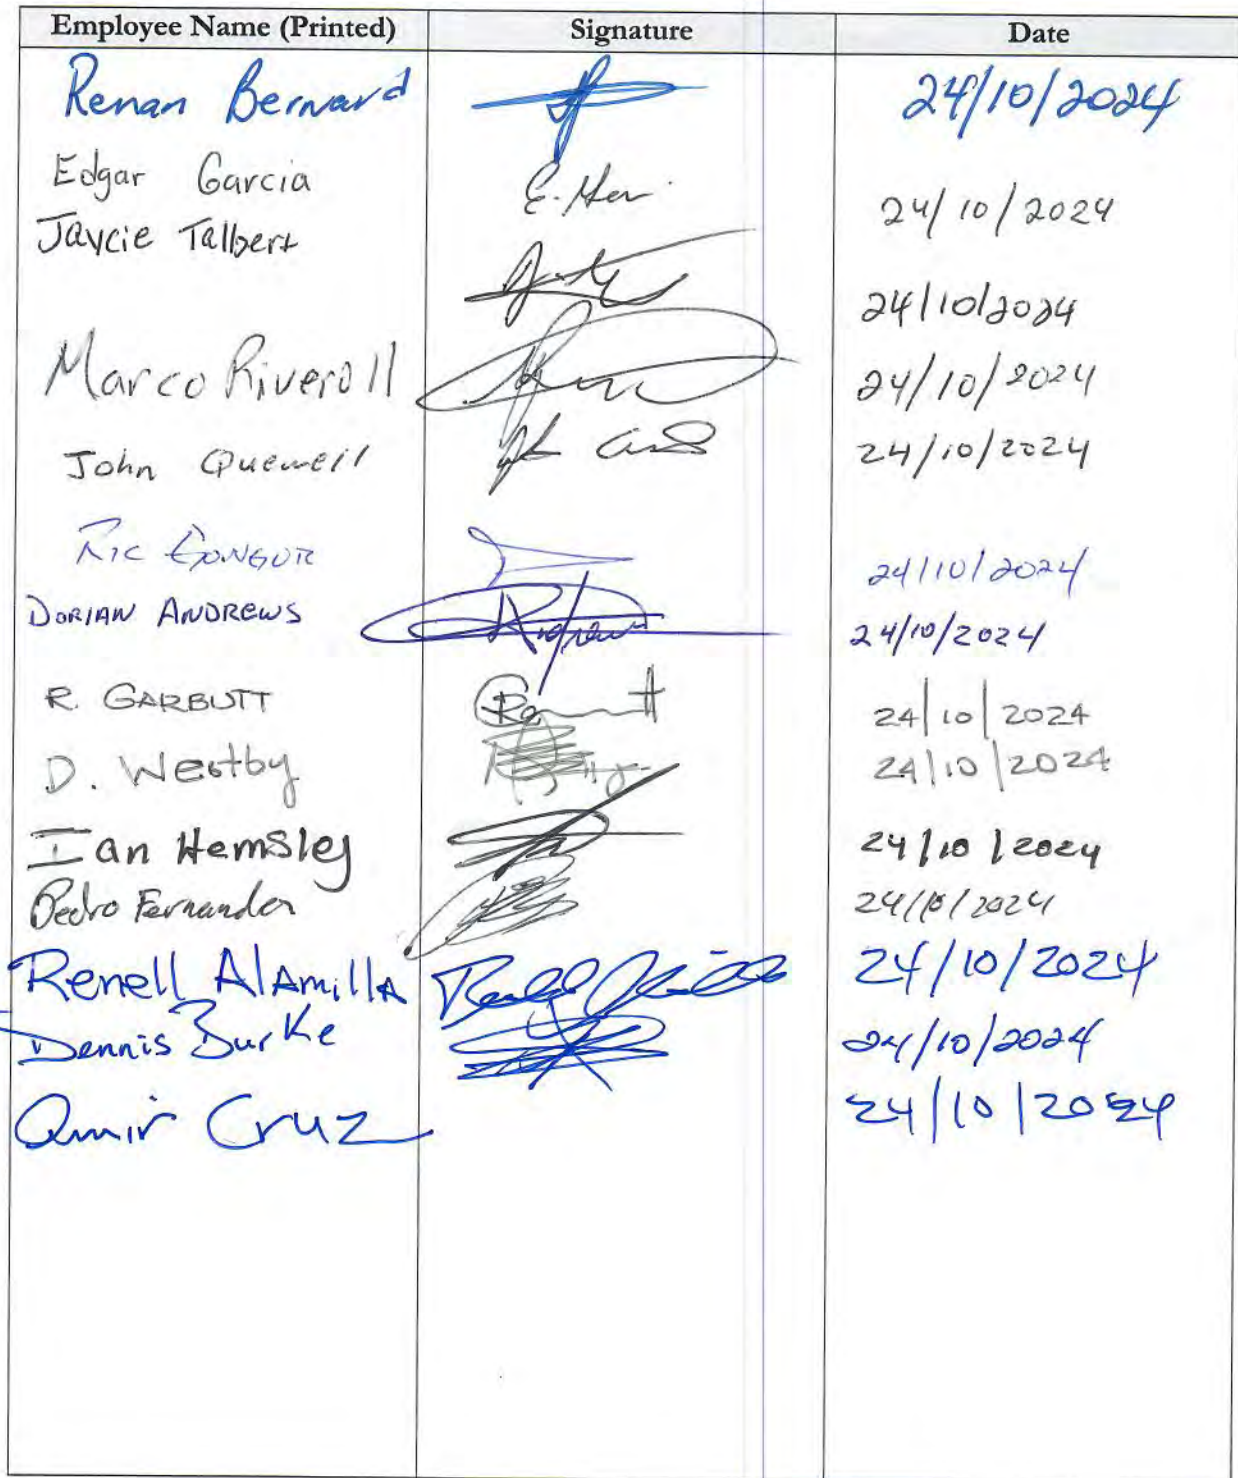 Employee Name (Printed) Signature Date
Renan Bernard 24/10/2024
Edgar Garcia 24/10/2024
Jaycie Talbert 24/10/2024
Marco Riveroll 24/10/2024
John 24/10/2024
Ric Gongor 24/10/2024
DORIAN ANDREWS Andrews 24/10/2024
R. GARBUTT 24/10/2024
D. Westby 24/10/2024
Ian Hemsley 24/10/2024
Pedro Fernander 24/10/2024
Renell AlAmillA 24/10/2024
Dennis Burke 24/10/2024
Cruz 24/10/2024